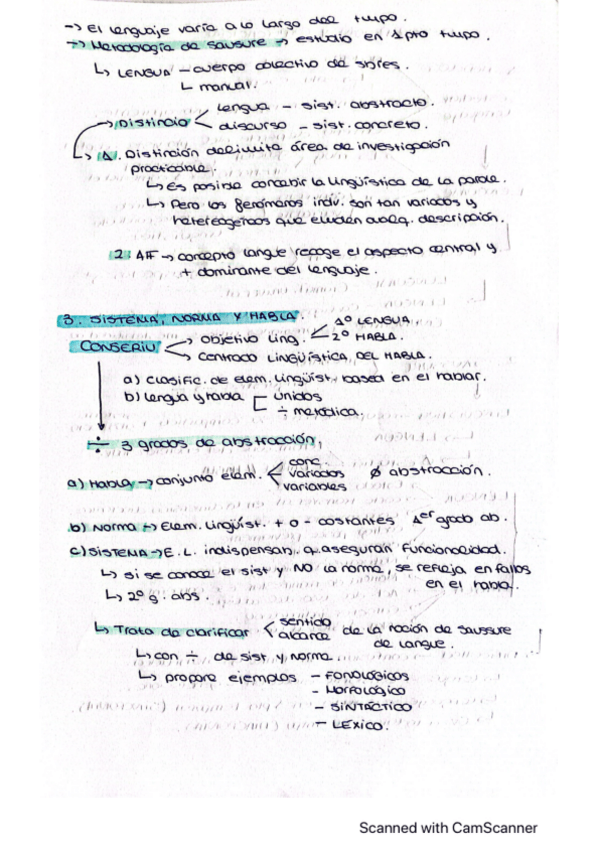 -> El lenguaje varía a lo largo del tmpo.
-> Metodología de Sausure -> estudio en 1 pto tmpo.
↳ LENGUA - cuerpo colectivo de
↳ manual.
-> Distincio < lengua - sist. abstracto.
discurso - sist. concreto.
↳ 1. Distinción delimita área de investigación
practicable.
↳ Es posible concebir la Lingüística de la parole.
↳ Pero los fenómenos indiv. son tan variados y
heterogéneos que eluden descripción.
2. Aff -> concepto langue recoge el aspecto central y
+ dominante del lenguaje.
3. SISTEMA, NORMA Y HABLA.
CONSERIU < -> objetivo ling. < 1º LENGUA.
2º HABLA.
-> CENTRADO LINGÜÍSTICA DEL HABLA.
a) Clasific. de elem. lingüíst. basada en el hablar.
b) lengua y habla [ unidos
÷ metódica.
÷ 3 grados de abstracción,
a) Habla -> conjunto elem. < conc.
variados
variables
∅ abstracción.
b) Norma -> Elem. Lingüíst. + o - costantes 1er grado ab.
c) SISTEMA -> E.L. indispensab. q aseguran funcionalidad.
↳ si se conoce el sist y NO la norma, se refleja en fallos
en el habla.
↳ 2º g. abs.
↳ Trata de clarificar < sentido
alcance
de la noción de saussure
de langue.
↳ con ÷ de sist y norma.
↳ propone ejemplos - FONOLÓGICOS
- MORFOLÓGICO
- SINTÁCTICO
- LÉXICO.
Scanned with CamScanner